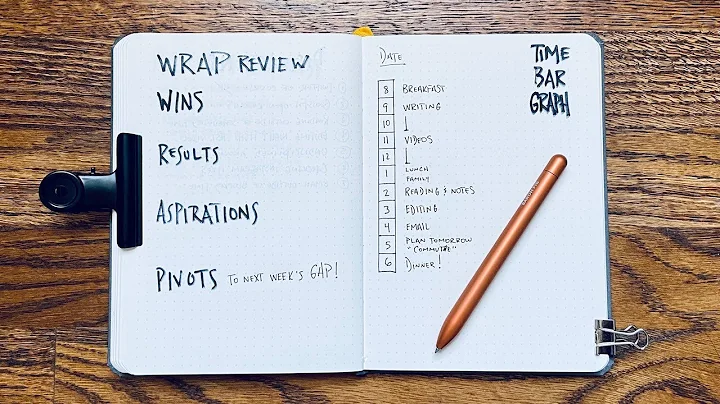 WRAP REVIEW
WINS
RESULTS
ASPIRATIONS
PIVOTS TO NEXT WEEK'S GAP!
DATE
TIME
BAR
GRAPH
8 BREAKFAST
9 WRITING
10
11 VIDEOS
12
1 LUNCH
FAMILY
2 READING & NOTES
3 EDITING
4 EMAIL
5 PLAN TOMORROW
"COMMUTE"
6 DINNER!